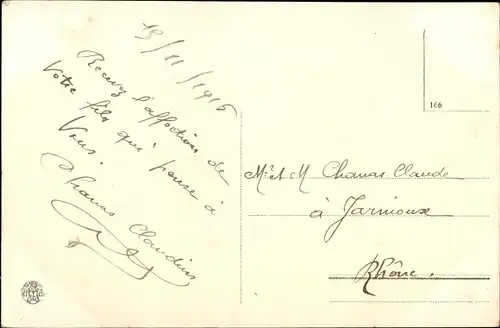 15/11/1916
Recevez l'affection de
Votre fils qui pense à
Vous.
Chanas Claudius
166
Mr et M Chanas Claude
à Jarnioux
Rhône.